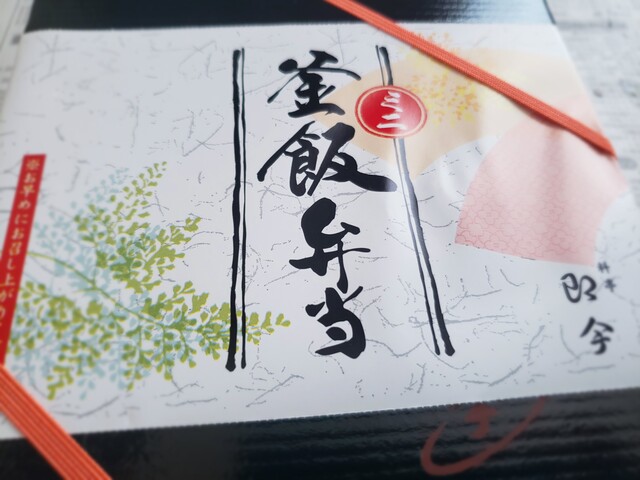 釜飯弁当
ミニ
料亭
即今
※お早めにお召し上がり